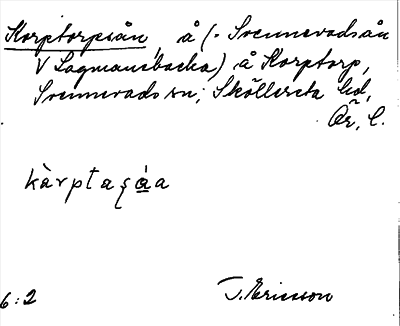 Korptorpsån, å (. Svennevadsån
V Lagmansbacka) å Korptorp,
Svennevads sn; Sköllersta hd,
Ör. l.
kàrptaşáa
6:2
T. Ericsson